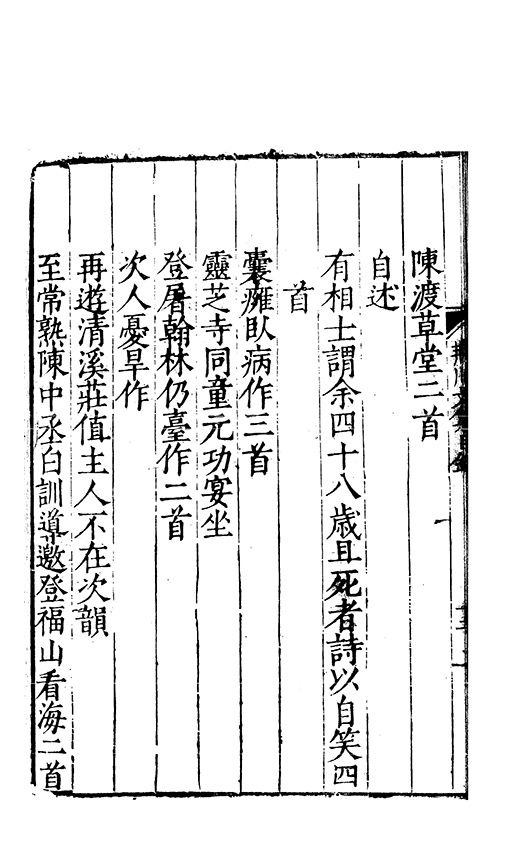 陳渡草堂二首
自述
有相士謂余四十八歲且死者詩以自笑四
首
囊癰臥病作三首
靈芝寺同童元功宴坐
登屠翰林仍臺作二首
次人憂旱作
再遊清溪莊值主人不在次韻
至常熟陳中丞白訓導邀登福山看海二首